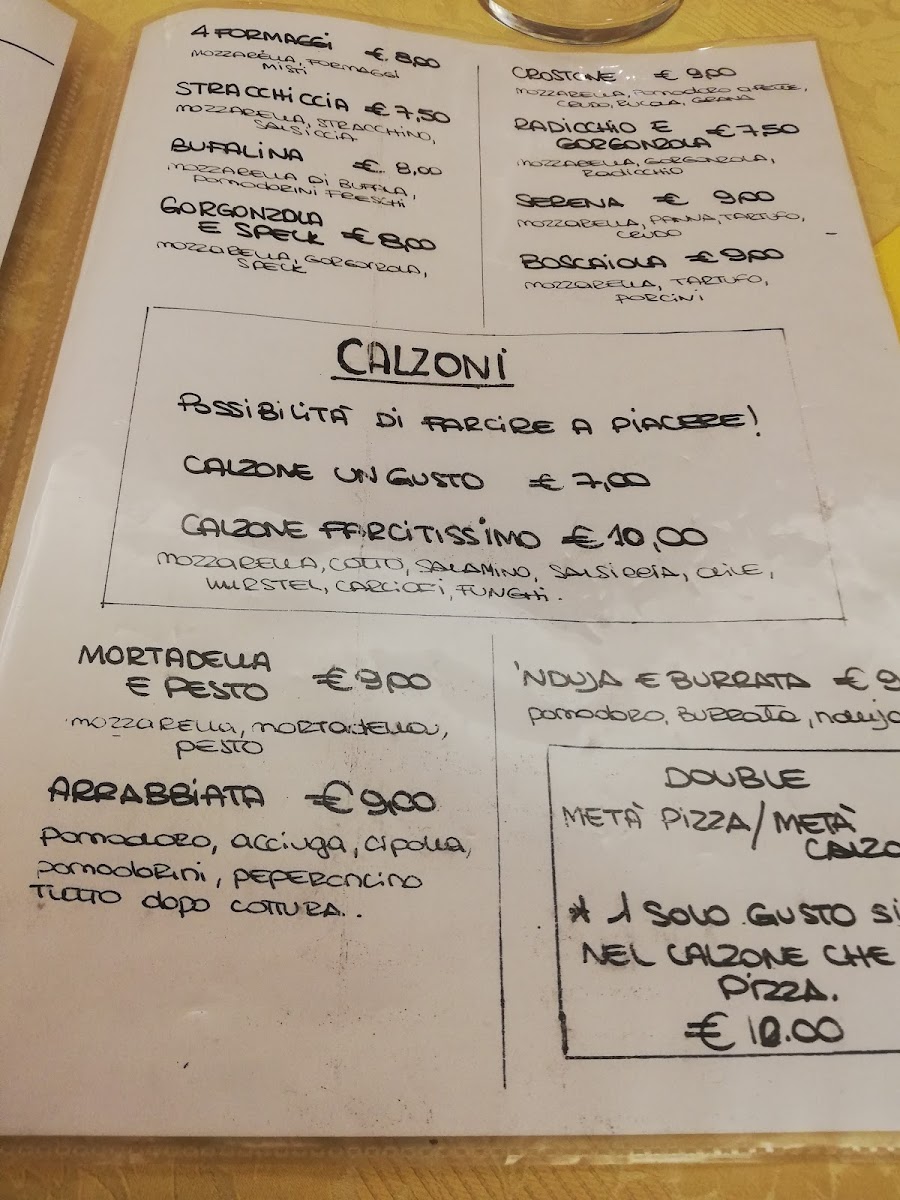 4 FORMAGGI €. 8,00
MOZZARELLA, FORMAGGI
MISTI
STRACCHICCIA €7,50
MOZZARELLA, STRACCHINO,
SALSICCIA
BUFALINA €. 8,00
MOZZARELLA DI BUFALA,
POMODORINI FRESCHI
GORGONZOLA
E SPECK €8,00
MOZZARELLA, GORGONZOLA,
SPECK
CROSTONE € 9,00
MOZZARELLA, POMODORO A FETTE,
CRUDO, RUCOLA, GRANA
RADICCHIO E €7,50
GORGONZOLA
MOZZARELLA, GORGONZOLA,
RADICCHIO
SERENA € 9,00
MOZZARELLA, PANNA, TARTUFO,
CRUDO
BOSCAIOLA €9,00
MOZZARELLA, TARTUFO,
PORCINI
CALZONI
POSSIBILITÀ DI FARCIRE A PIACERE!
CALZONE UN GUSTO € 7,00
CALZONE FARCITISSIMO €10,00
MOZZARELLA, COTTO, SALAMINO, SALSICCIA, OLIVE,
WURSTEL, CARCIOFI, FUNGHI.
MORTADELLA
E PESTO €9,00
MOZZARELLA, MORTADELLA,
PESTO
ARRABBIATA €9,00
pomodoro, acciuga, cipolla,
pomodorini, PEPERONCINO
TUTTO dopo COTTURA..
'NDUJA E BURRATA €9
pomodoro, BURRATA, nduja
DOUBLE
METÀ PIZZA/METÀ
CALZO
* 1 SOLO GUSTO SI
NEL CALZONE CHE
PIZZA.
€ 10.00